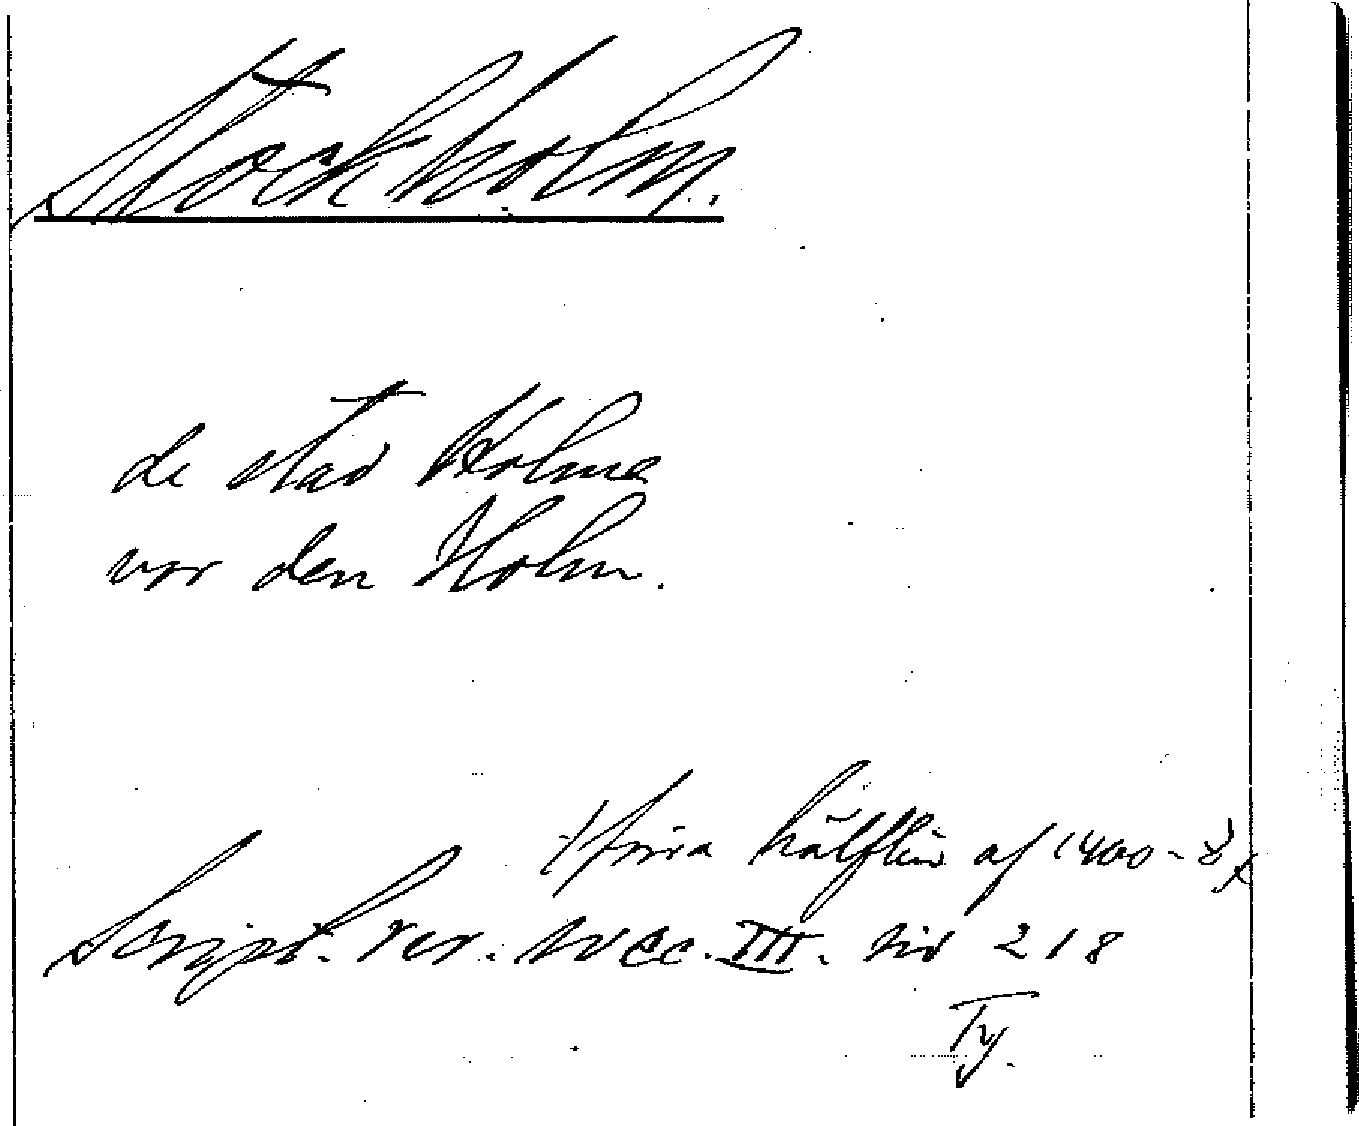 Stockholm.
de stad Holme
vor den Holm.
förra hälften af 1400-t.
Script. rer. svec. III. sid 218
Ty.